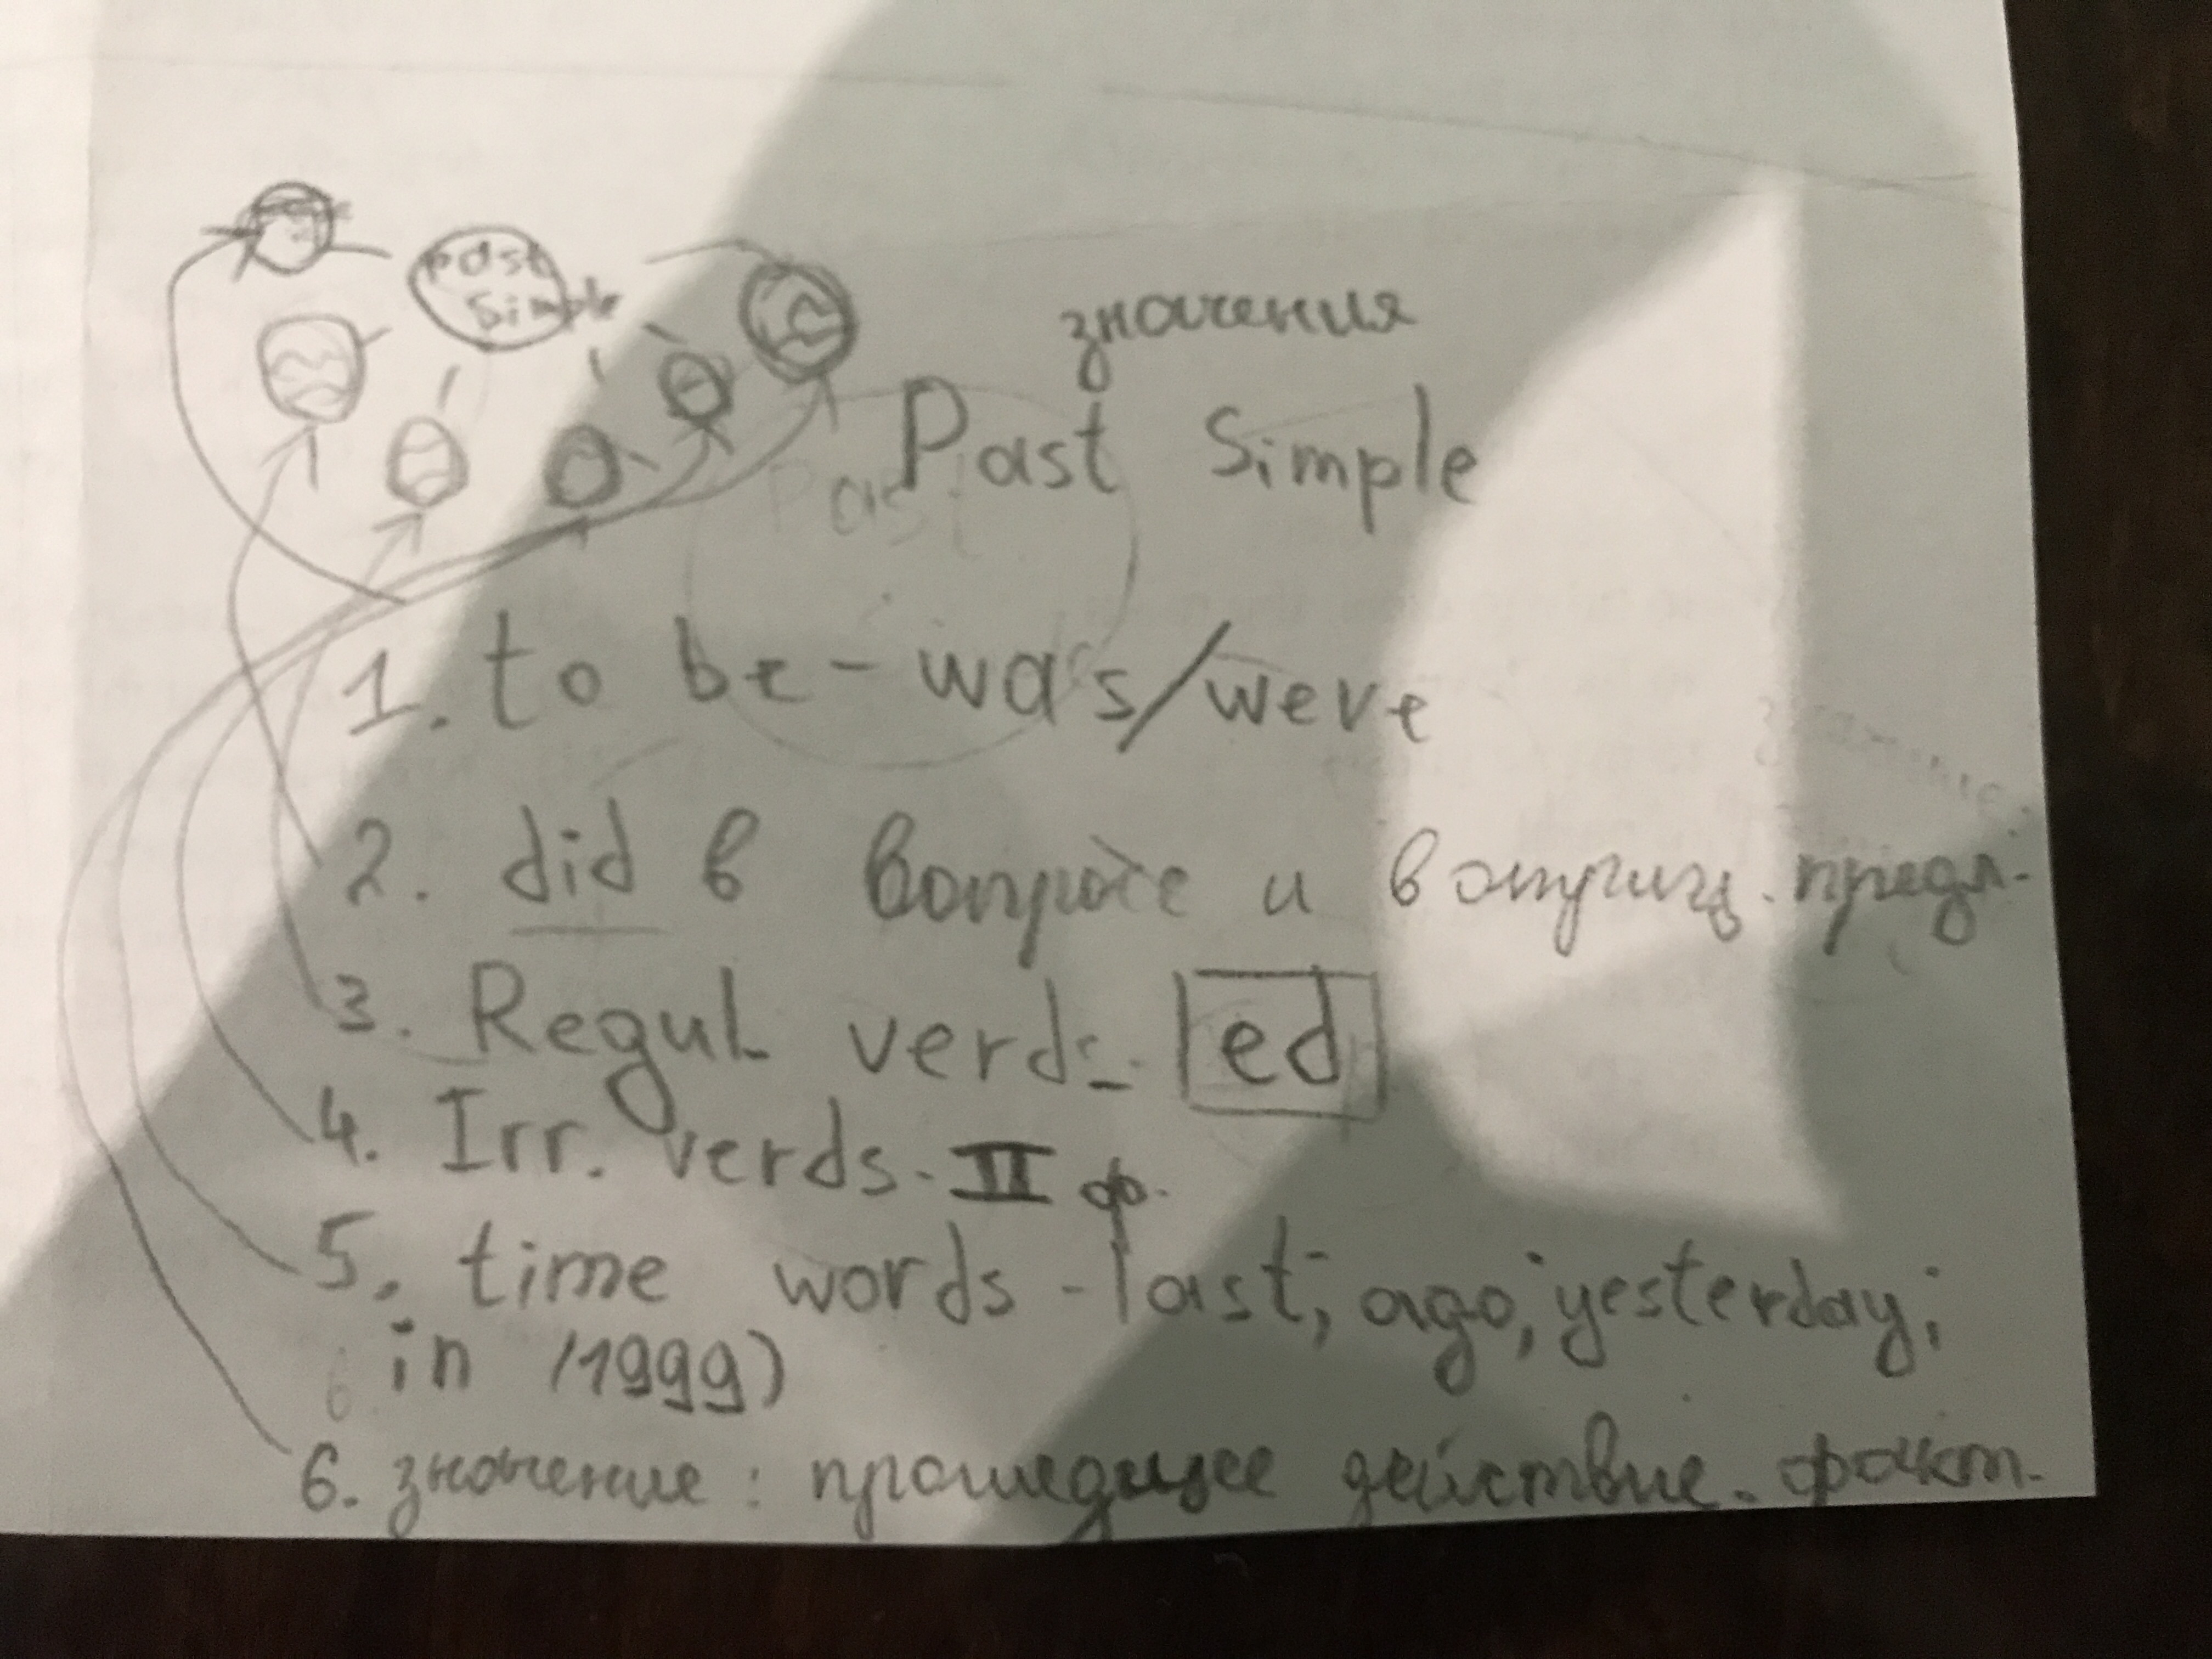 past
Simple
значения
Past Simple
Past
1. to be - was/weve
2. did в вопросе и в отриц. предл.
3. Regul. verds - ed
4. Irr. verds - II ф.
5. time words - last; ago; yesterday;
in (1999)
6
6. значение: прошедшее действие. факт.